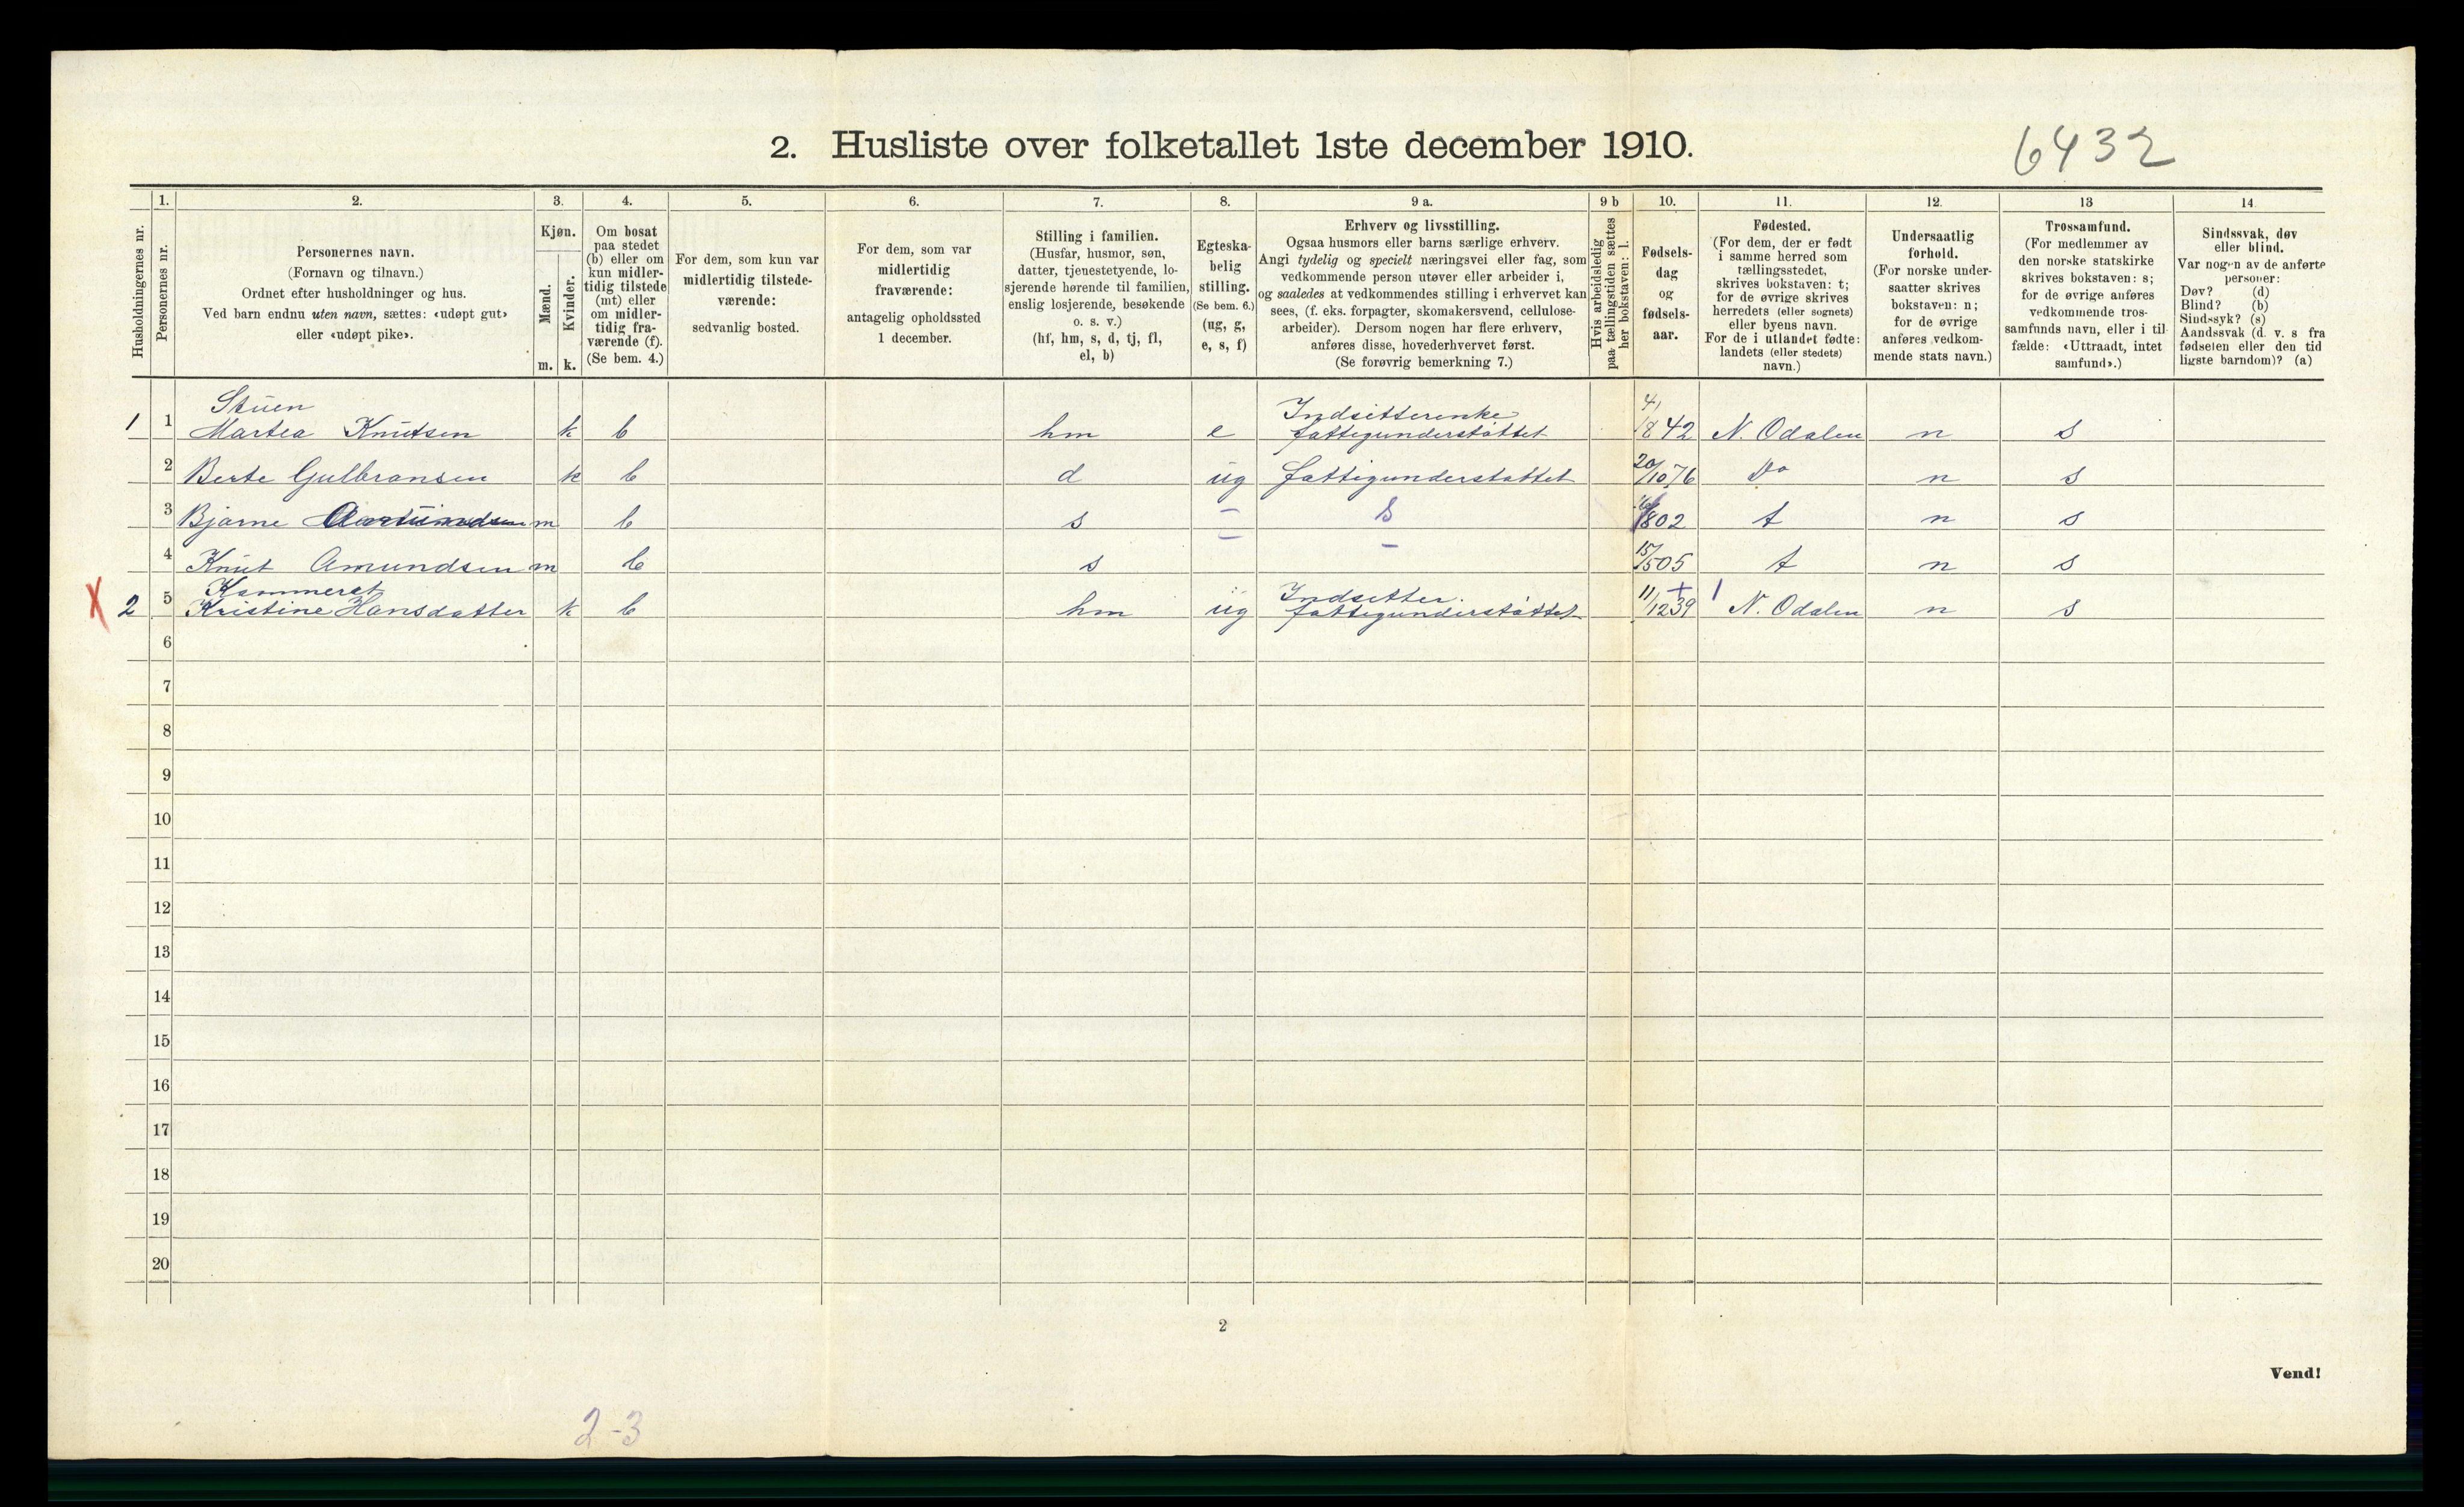 2. Husliste over folketallet 1ste december 1910.
6432
1. 2. 3. 4. 5. 6. 7. 8. 9 a. 9 b 10. 11. 12. 13 14
Husholdningernes nr.
Personernes nr.
Personernes navn.
(Fornavn og tilnavn.)
Ordnet efter husholdninger og hus.
Ved barn endnu uten navn, sættes: «udøpt gut»
eller «udøpt pike».
Kjøn.
Mænd.
Kvinder.
m. k.
Om bosat
paa stedet
(b) eller om
kun midler-
tidig tilstede
(mt) eller
om midler-
tidig fra-
værende (f).
(Se bem. 4.)
For dem, som kun var
midlertidig tilstede-
værende:
sedvanlig bosted.
For dem, som var
midlertidig
fraværende:
antagelig opholdssted
1 december.
Stilling i familien.
(Husfar, husmor, søn,
datter, tjenestetyende, lo-
sjerende hørende til familien,
enslig losjerende, besøkende
o. s. v.)
(hf, hm, s, d, tj, fl,
el, b)
Egteska-
belig
stilling.
(Se bem. 6.)
(ug, g,
e, s, f)
Erhverv og livsstilling.
Ogsaa husmors eller barns særlige erhverv.
Angi tydelig og specielt næringsvei eller fag, som
vedkommende person utøver eller arbeider i,
og saaledes at vedkommendes stilling i erhvervet kan
sees, (f. eks. forpagter, skomakersvend, cellulose-
arbeider). Dersom nogen har flere erhverv,
anføres disse, hovederhvervet først.
(Se forøvrig bemerkning 7.)
Hvis arbeidsledig
paa tællingstiden sættes
her bokstaven: l.
Fødsels-
dag
og
fødsels-
aar.
Fødested.
(For dem, der er født
i samme herred som
tællingsstedet,
skrives bokstaven: t;
for de øvrige skrives
herredets (eller sognets)
eller byens navn.
For de i utlandet fødte:
landets (eller stedets)
navn.)
Undersaatlig
forhold.
(For norske under-
saatter skrives
bokstaven: n;
for de øvrige
anføres vedkom-
mende stats navn.)
Trossamfund.
(For medlemmer av
den norske statskirke
skrives bokstaven: s;
for de øvrige anføres
vedkommende tros-
samfunds navn, eller i til-
fælde: «Uttraadt, intet
samfund».)
Sindssvak, døv
eller blind.
Var nogen av de anførte
personer:
Døv? (d)
Blind? (b)
Sindssyk? (s)
Aandssvak (d. v. s. fra
fødselen eller den tid
ligste barndom)? (a)
Stuen Indsitterenke
1 1 Martea Knutsen k b hm e fattigunderstøttet 4/8 42 N. Odalen n s
2 Berte Gulbransen k b d ug fattigunderstøttet 20/10 76 Do n s
3 Bjarne m b s - s 02 t n s
4 Knut Amundsen m b s - - 15/5 05 t n s
Kammeret Indsetter
X 2 5 Kristine Hansdatter k b hm ug fattigunderstøttet 11/12 39 N. Odalen n s
6
7
8
9
10
11
12
13
14
15
16
17
18
19
20
2
Vend!
2-3